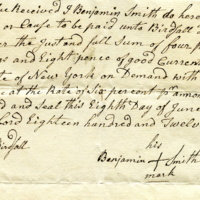 Received I Benjamin Smith do here
or Cause to be paid unto Birdsall
the Just and full Sum of four p
and Eight pence of good Curren
of New York on Demand with
at the Rate of Six per cent pr
and Seal this Eighth Day of June
Lord Eighteen hundred and Twelve
his
Benjamin + Smith
mark